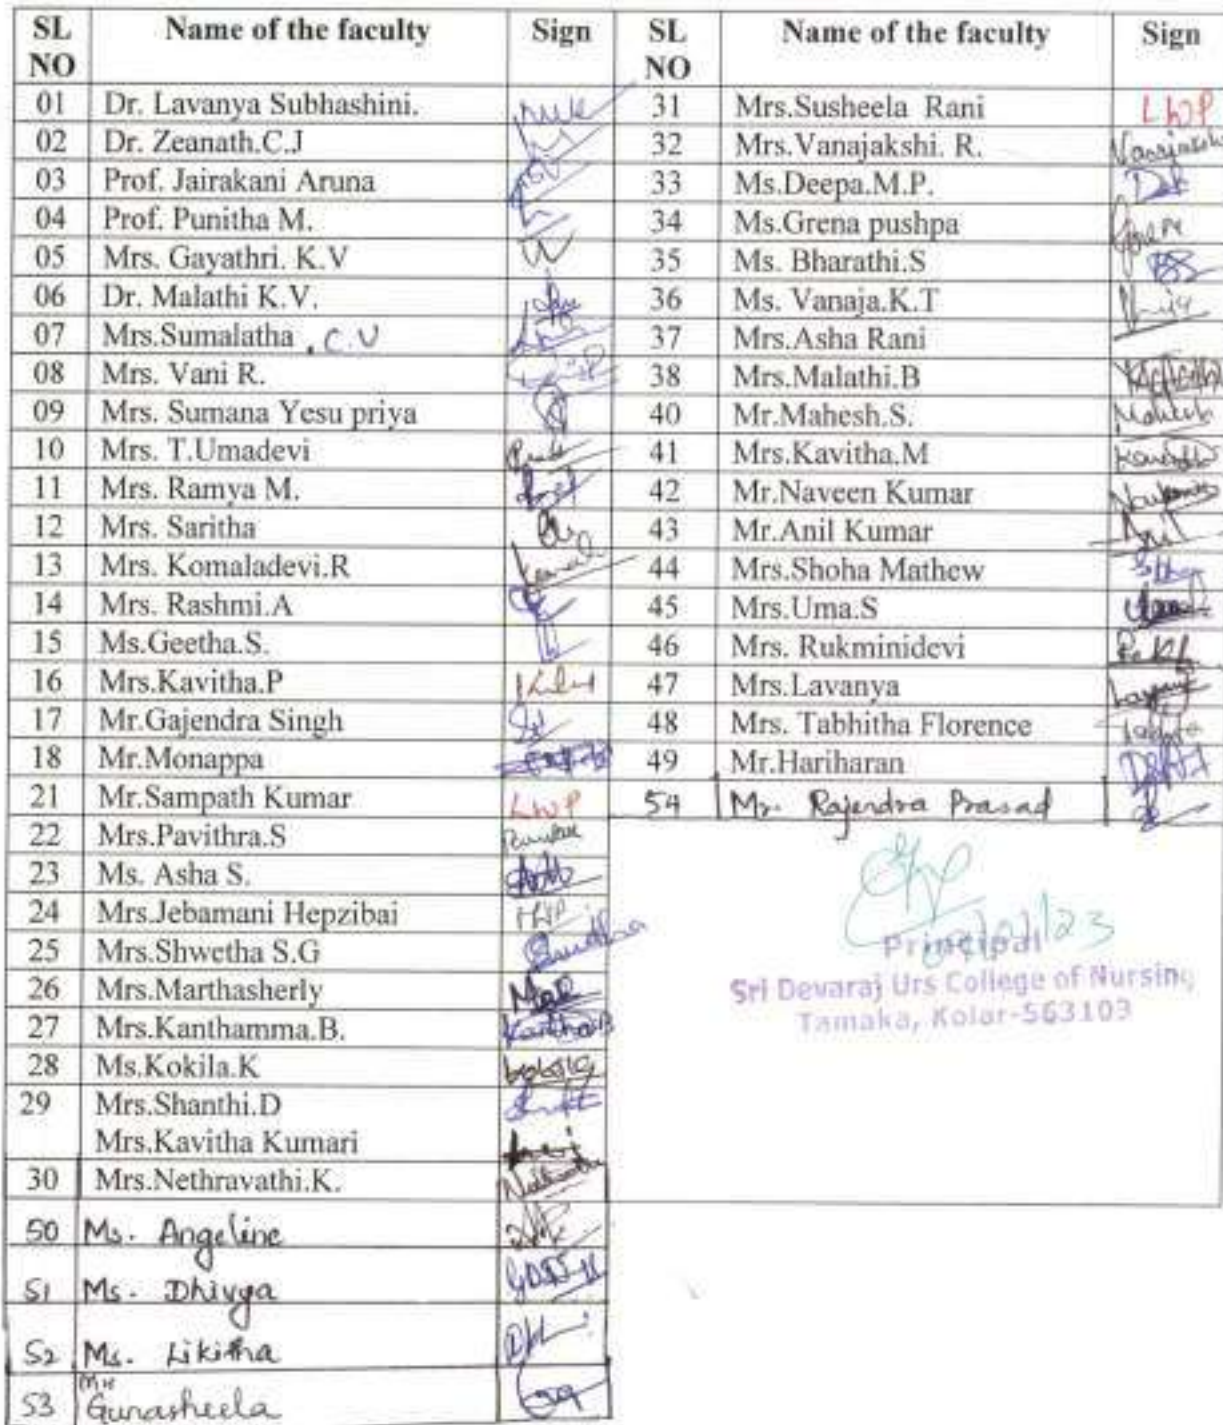 SL NO Name of the faculty Sign
01 Dr. Lavanya Subhashini.
02 Dr. Zeanath.C.J
03 Prof. Jairakani Aruna
04 Prof. Punitha M.
05 Mrs. Gayathri. K.V
06 Dr. Malathi K.V.
07 Mrs.Sumalatha . C V
08 Mrs. Vani R.
09 Mrs. Sumana Yesu priya
10 Mrs. T.Umadevi
11 Mrs. Ramya M.
12 Mrs. Saritha
13 Mrs. Komaladevi.R
14 Mrs. Rashmi.A
15 Ms.Geetha.S.
16 Mrs.Kavitha.P
17 Mr.Gajendra Singh
18 Mr.Monappa
21 Mr.Sampath Kumar LWP
22 Mrs.Pavithra.S
23 Ms. Asha S.
24 Mrs.Jebamani Hepzibai
25 Mrs.Shwetha S.G
26 Mrs.Marthasherly
27 Mrs.Kanthamma.B. Kantha.B
28 Ms.Kokila.K
29 Mrs.Shanthi.D
Mrs.Kavitha Kumari
30 Mrs.Nethravathi.K.
50 Ms. Angeline
51 Ms. Dhivya
52 Ms. Likitha
53 Gunasheela
SL NO Name of the faculty Sign
31 Mrs.Susheela Rani LWP
32 Mrs.Vanajakshi. R. Vanajakshi
33 Ms.Deepa.M.P.
34 Ms.Grena pushpa
35 Ms. Bharathi.S
36 Ms. Vanaja.K.T
37 Mrs.Asha Rani
38 Mrs.Malathi.B
40 Mr.Mahesh.S. Mahesh
41 Mrs.Kavitha.M
42 Mr.Naveen Kumar
43 Mr.Anil Kumar Anil
44 Mrs.Shoha Mathew
45 Mrs.Uma.S
46 Mrs. Rukminidevi
47 Mrs.Lavanya
48 Mrs. Tabhitha Florence
49 Mr.Hariharan
54 Mr. Rajendra Prasad
Principal
Sri Devaraj Urs College of Nursing
Tamaka, Kolar-563103